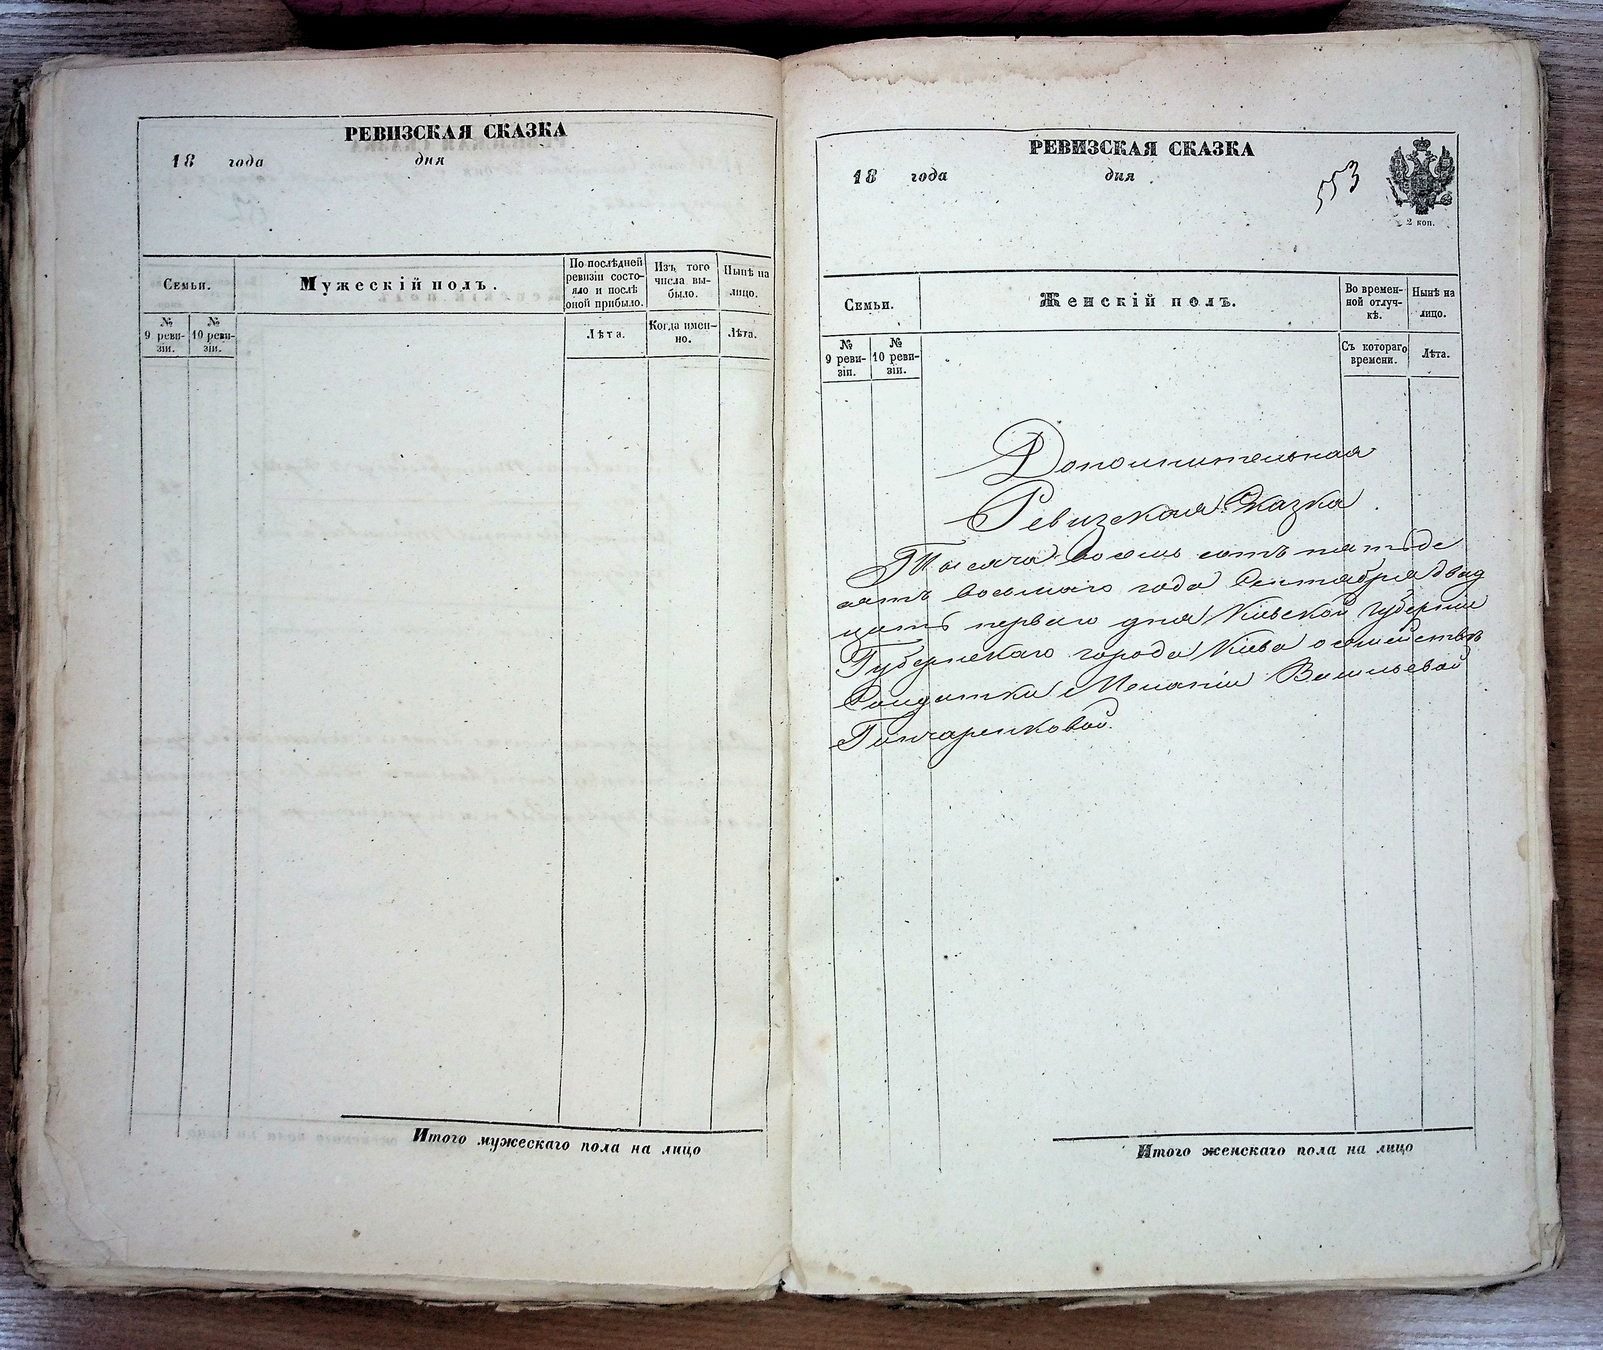 РЕВИЗСКАЯ СКАЗКА
18 года дня
Семьи.
Мужескій полъ.
По послѣдней
ревизіи состо-
яло и послѣ
оной прибыло.
Изъ того
числа вы-
было.
Нынѣ на
лицо.
№
9 реви-
зіи.
№
10 реви-
зіи.
Лѣта.
Когда имен-
но.
Лѣта.
Итого мужескаго пола на лицо
РЕВИЗСКАЯ СКАЗКА
18 года дня
553
2 коп.
Семьи.
Женскій полъ.
Во времен-
ной отлуч-
кѣ.
Нынѣ на
лицо.
№
9 реви-
зіи.
№
10 реви-
зіи.
Съ котораго
времени.
Лѣта.
Дополнительная
Ревизская Сказка
Тысяча восемь сотъ пятьде
сятъ восьмаго года Сентября двад
цать перваго дня Кіевской губерніи
Губернскаго города Кіева о семействѣ
Солдатки Меланіи Васильевой
Гончаренковой.
Итого женскаго пола на лицо